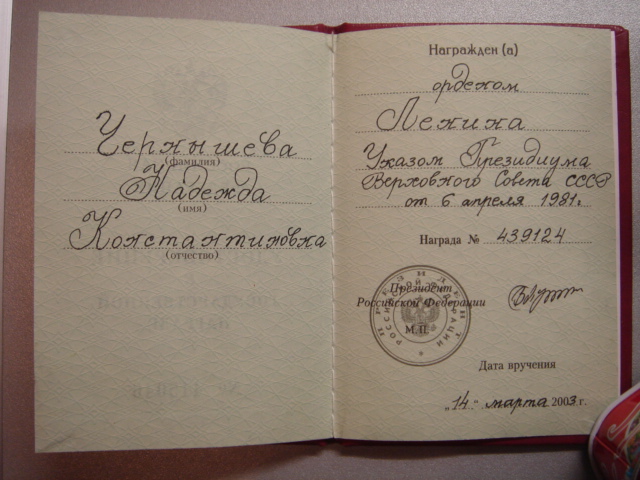 Чернышева
(фамилия)
Надежда
(имя)
Константиновна
(отчество)
Награжден (а)
орденом
Ленина
Указом Президиума
Верховного Совета СССР
от 6 апреля 1981г.
Награда № 439124
Президент
Российской Федерации
М.П.
ПРЕЗИДЕНТ
РОССИЙСКОЙ ФЕДЕРАЦИИ
Дата вручения
„14" марта 2003 г.